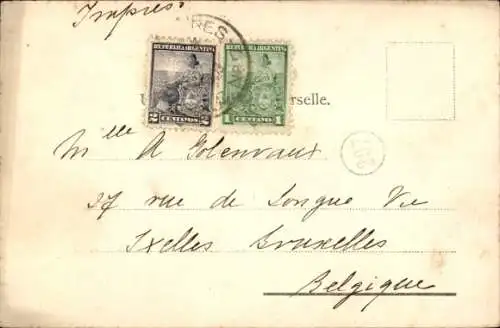 Impres
RES
REPUBLICA ARGENTINA REPUBLICA ARGENTINA
2 CENTAVOS 2 1 CENTAVO 1
erselle.
Mlle A Golenvaux
37 rue de Longue Vie
Ixelles Bruxelles
Belgique